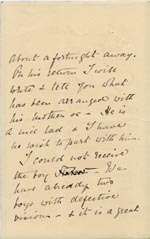 about a fortnight away.
On his return I will
write & tell you what
has been arranged with
his mother &c – He is
a nice lad & I have
no wish to part with him.
I could not receive
the boy – We
have already two
boys with defective
vision – & it is a great